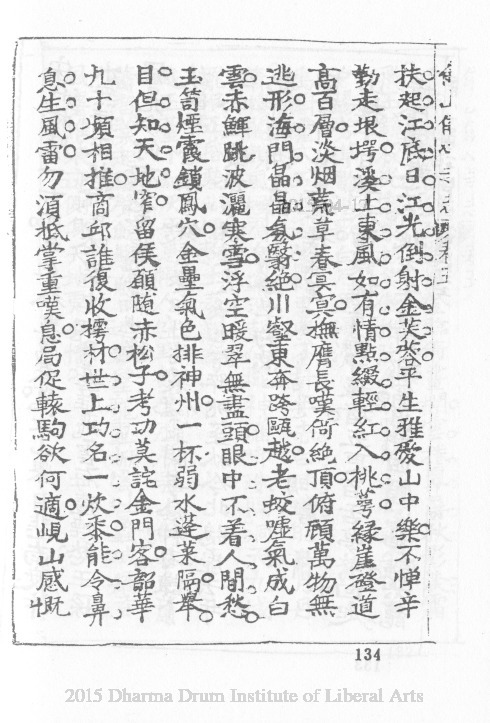 扶起江底日江光倒射金芙蓉平生雅愛山中樂不憚辛
勤走垠堮溪上東風如有情點綴輕紅入桃萼緣崖磴道
高百層淡烟荒草春冥冥撫膺長嘆倚絶頂俯顧萬物無
逃形海門晶晶氛翳絶川壑東奔跨甌越老蛟噓氣成白
雲赤鯶跳波灑寒雪浮空暖翠無盡頭眼中不着人間愁
玉笥煙霞鎖鳳穴金壘氣色排神州一杯弱水蓬萊隔舉
目但知天地窄留侯願随赤松子考功莫詫金門客韶華
九十頃相推商邱誰復收樗材世上功名一炊黍能令鼻
息生風雷勿湏抵掌重嘆息局促轅駒欲何適峴山感慨
134
2015 Dharma Drum Institute of Liberal Arts